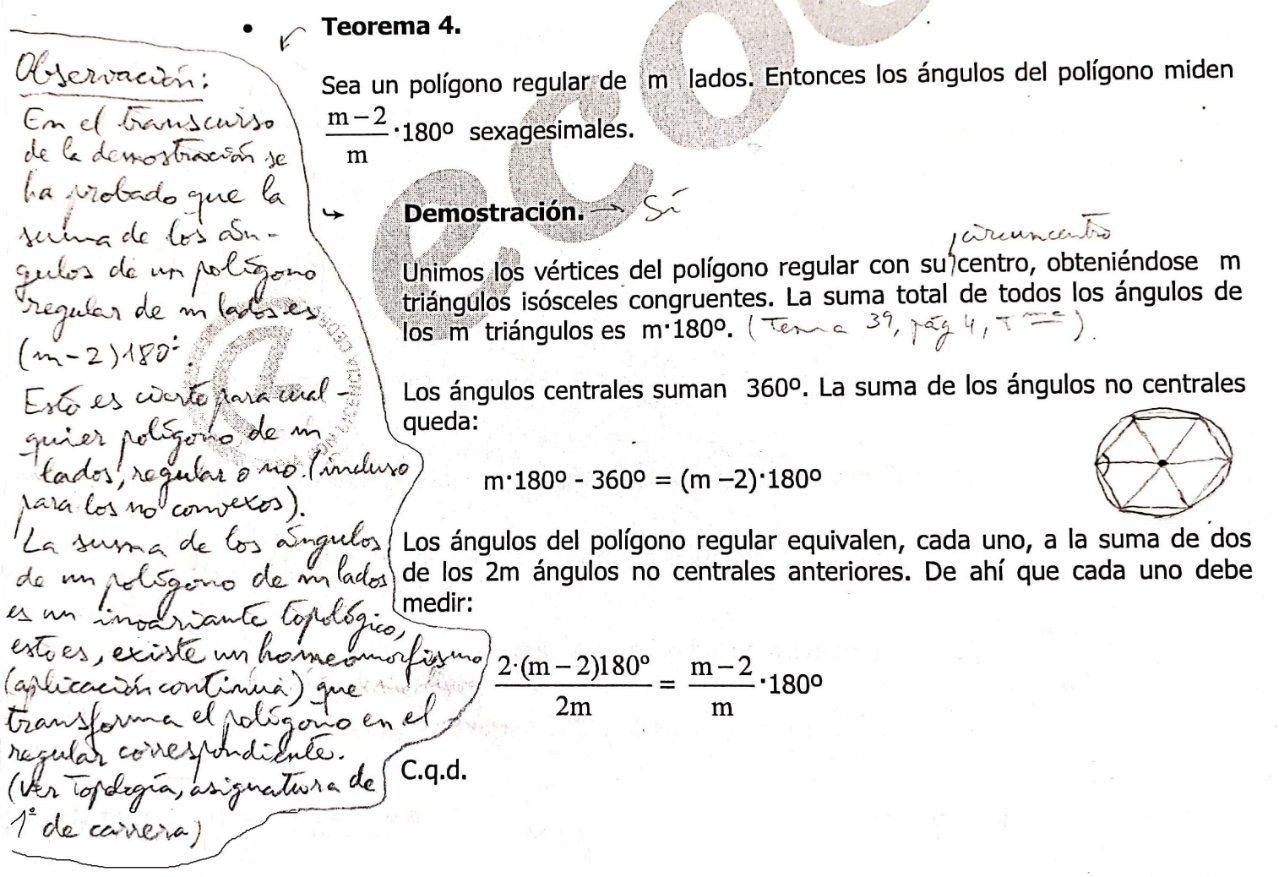 • Teorema 4.
Sea un polígono regular de m lados. Entonces los ángulos del polígono miden
m − 2
m
·180º sexagesimales.
Demostración. → Sí
circuncentro
Unimos los vértices del polígono regular con su centro, obteniéndose m
triángulos isósceles congruentes. La suma total de todos los ángulos de
los m triángulos es m·180º. (Tema 39, pág 4, Tma).
Los ángulos centrales suman 360º. La suma de los ángulos no centrales
queda:
m·180º - 360º = (m −2)·180º
Los ángulos del polígono regular equivalen, cada uno, a la suma de dos
de los 2m ángulos no centrales anteriores. De ahí que cada uno debe
medir:
2·(m − 2)180º / 2m = m − 2 / m ·180º
C.q.d.
Observación:
En el transcurso
de la demostración se
ha probado que la
suma de los án-
gulos de un polígono
regular de m lados es
(m-2)180º.
Esto es cierto para cual-
quier polígono de m
lados, regular o no (incluso
para los no convexos).
La suma de los ángulos
de un polígono de m lados
es un invariante topológico,
esto es, existe un homeomorfismo
(aplicación continua) que
transforma el polígono en el
regular correspondiente.
(Ver Topología, asignatura de
1º de carrera)
ecoe